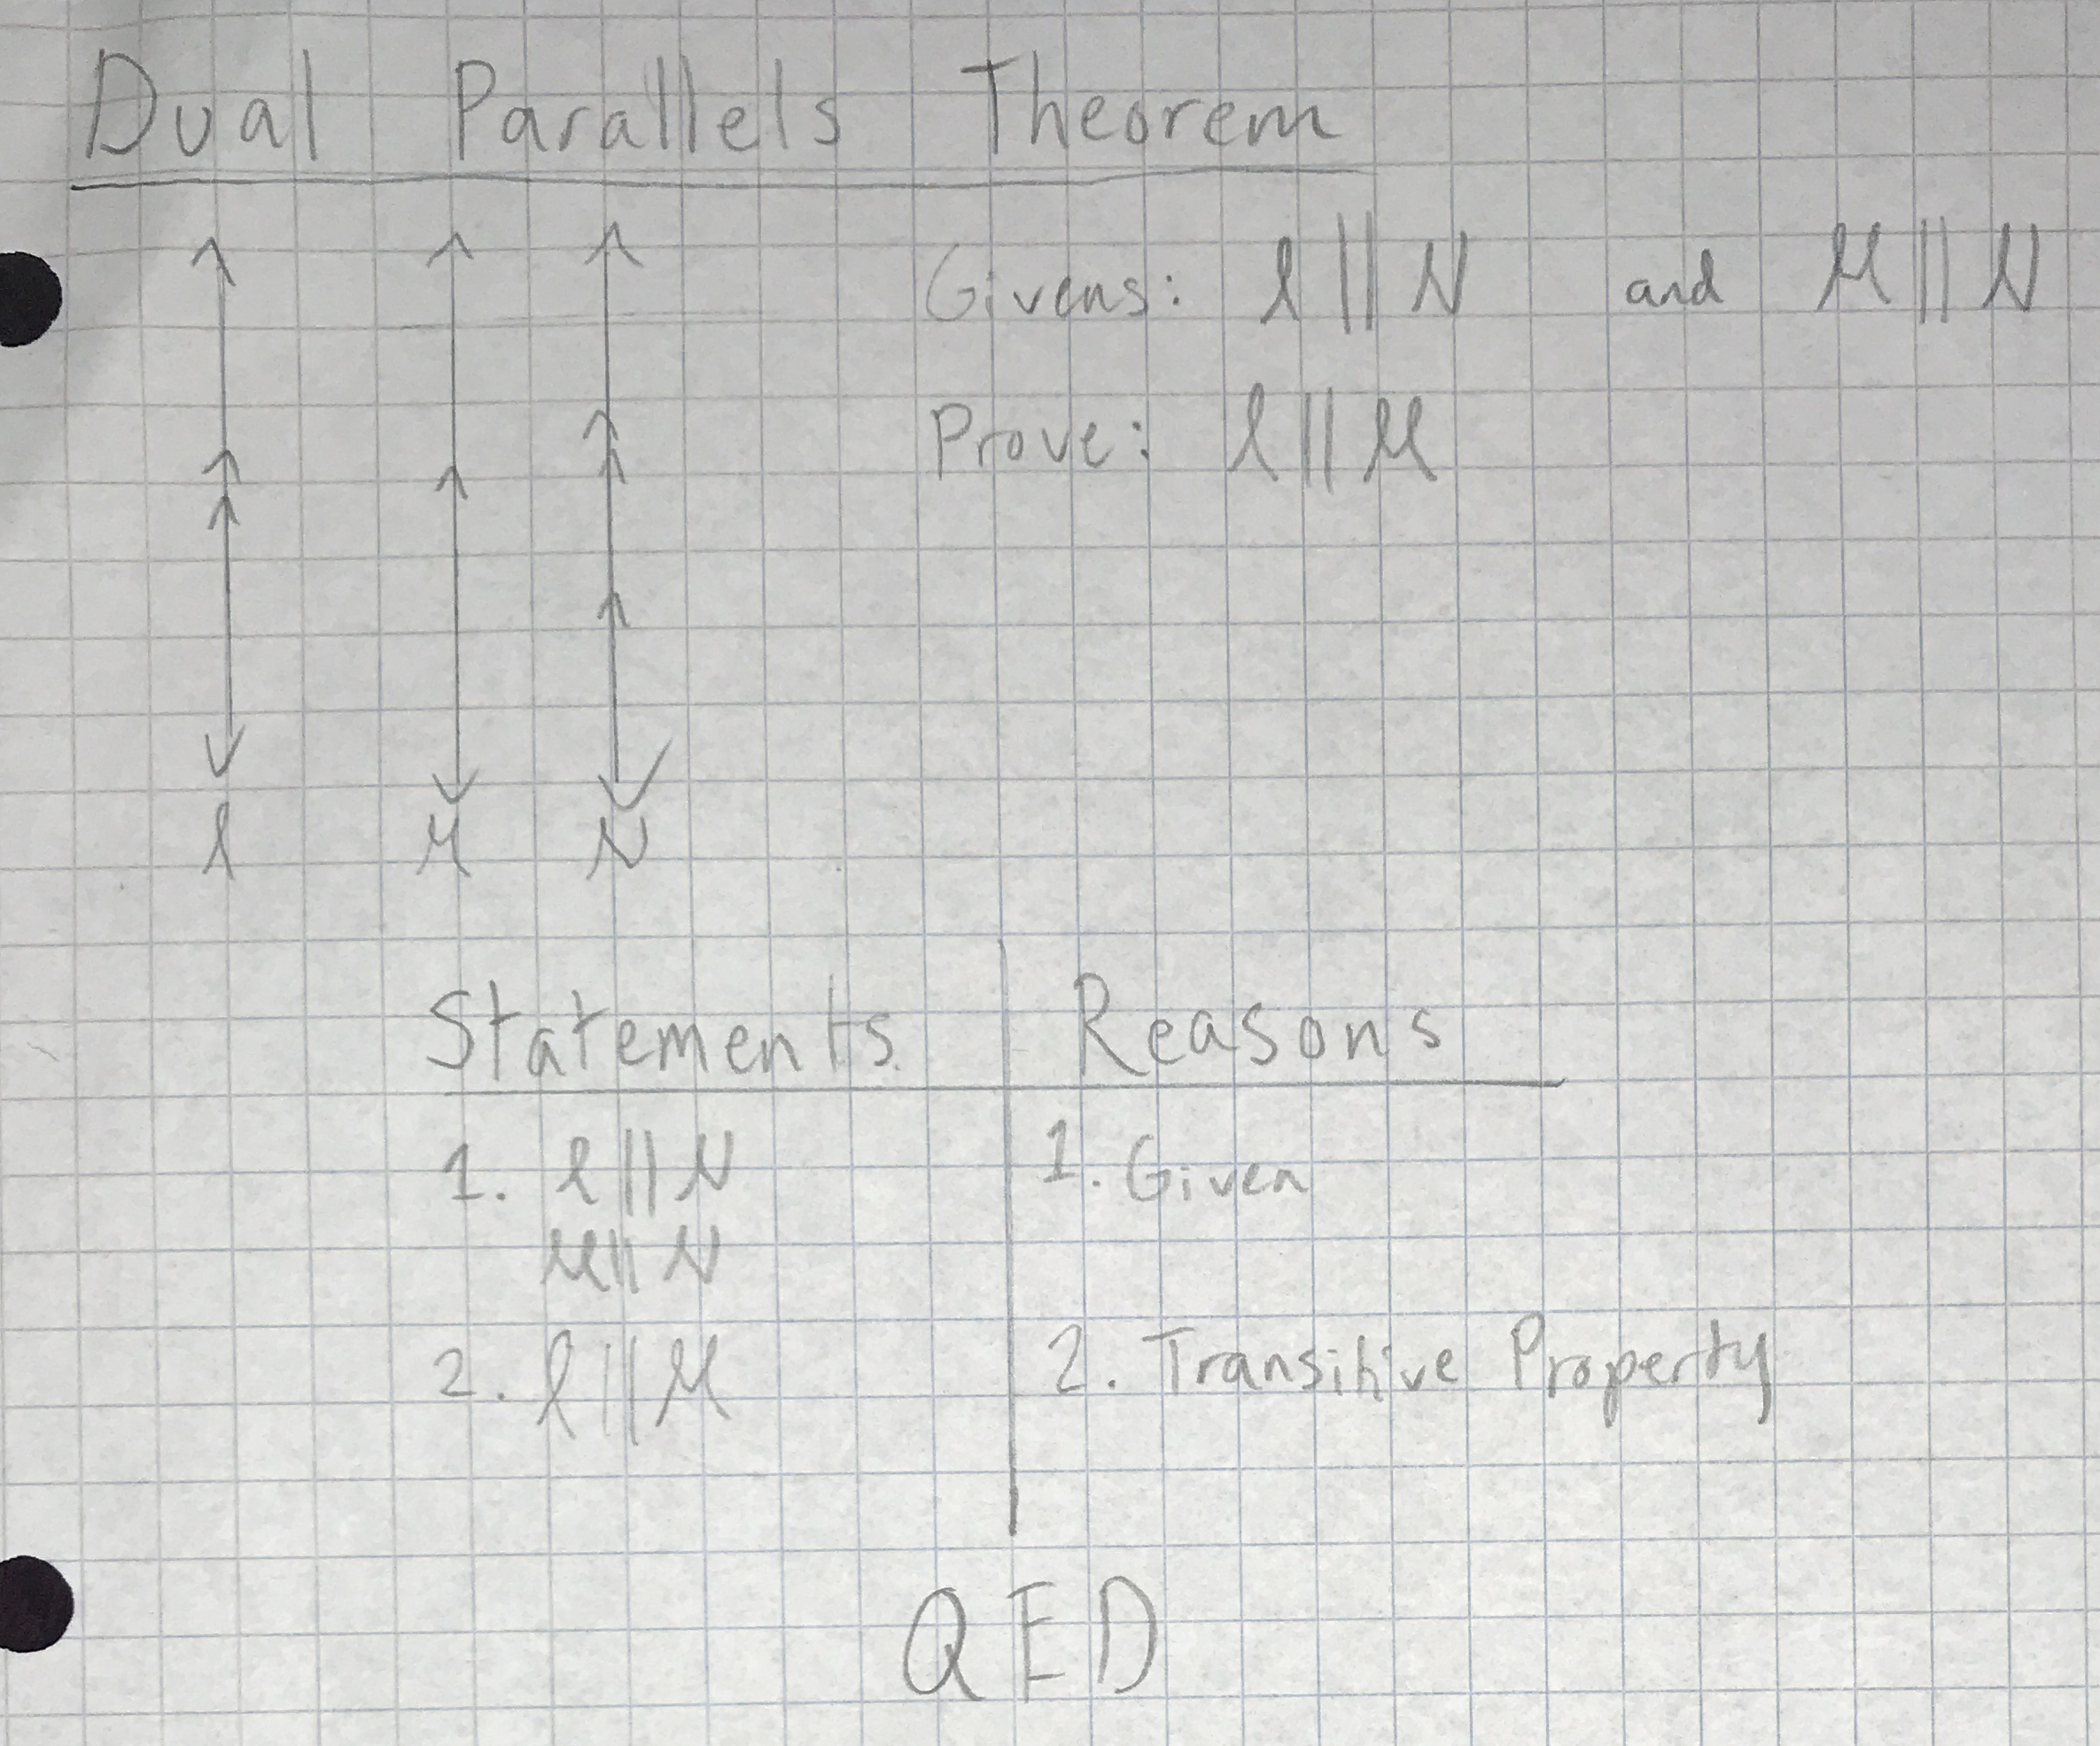 Dual Parallels Theorem
Givens: l || N and M || N
Prove: l || M
l M N
Statements Reasons
1. l || N 1. Given
M || N
2. l || M 2. Transitive Property
QED